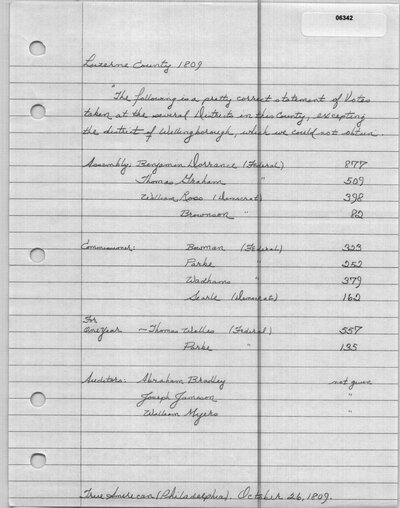 06342
Luzerne County 1809
"The following is a pretty correct statement of Votes
taken at the several Districts in this County, excepting
the district of Wellingborough, which we could not obtain.
Assembly: Benjamin Dorrance (Federal) 877
Thomas Graham " 509
William Ross (Democrat) 398
Brownson " 82
Commissioner: Bowman (Federal) 323
Parke " 252
Wadhams " 379
Searle (Democrat) 162
For
One Year - Thomas Welles (Federal) 557
Parke " 135
Auditors: Abraham Bradley not given
Joseph Jameson "
William Myers "
True American (Philadelphia). October 26, 1809.